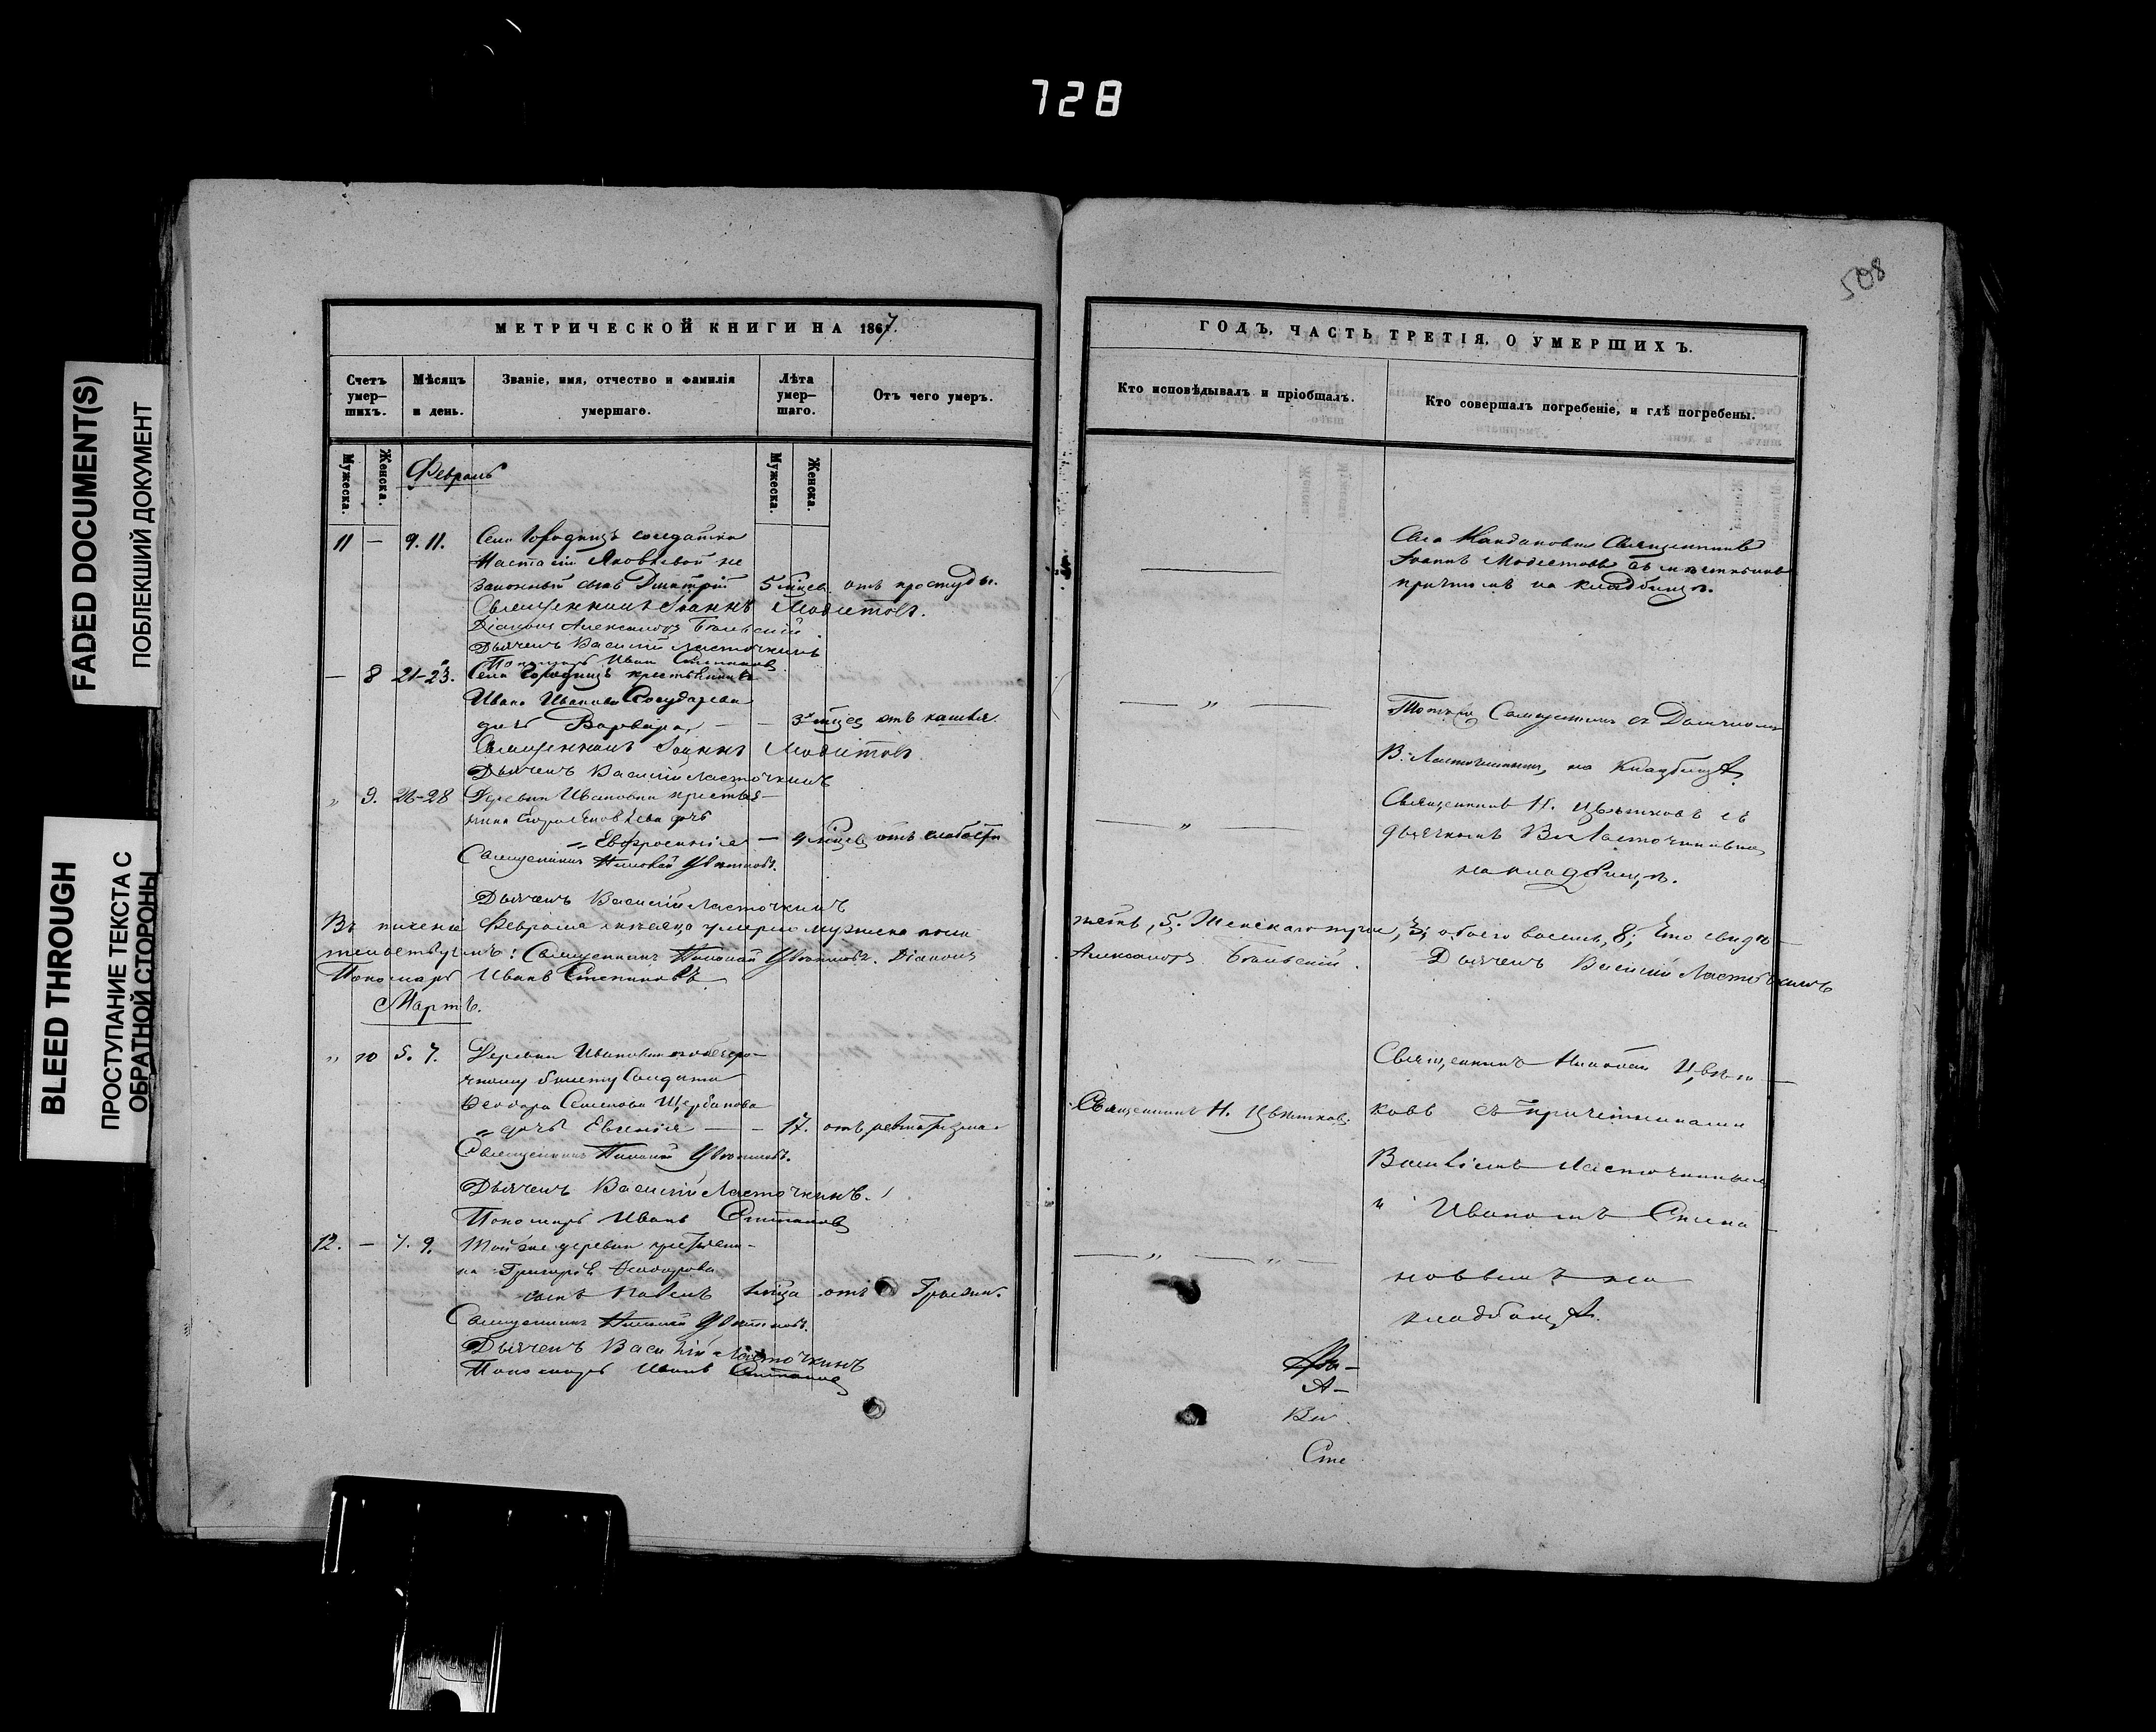 728
508
FADED DOCUMENT(S)
ПОБЛЕКШИЙ ДОКУМЕНТ
BLEED THROUGH
ПРОСТУПАНИЕ ТЕКСТА С
ОБРАТНОЙ СТОРОНЫ
МЕТРИЧЕСКОЙ КНИГИ НА 1867.
Счетъ умер–шихъ.
Мѣсяцъ и день.
Званіе, имя, отчество и фамилія умершаго.
Лѣта умер–шаго.
Отъ чего умеръ.
Мужеска.
Женска.
Мужеска.
Женска.
Февраль
11 — 9. 11. Села Городищъ солдатки
Настасіи Яковлевой не
законный сынъ Дмитрій 5 мѣсец. отъ простуды.
Священникъ Іоаннъ Модестовъ.
Діаконъ Александръ
Дьячекъ Василій Ласточкинъ
Пономарь Иванъ Степановъ
— 8 21-23. Села Городищъ крестьянина
Ивана Иванова Государева
дочь Варвара — — 3х мѣсец отъ кашля
Священникъ Іоаннъ Модестовъ
Дьячекъ Василій Ласточкинъ
„ 9. 26-28 Деревни Ивановки крестья–
нина Яковлева дочь
„ Евфросинія — 9 мѣсец отъ слабости
Священникъ Николай Цвѣтковъ.
Дьячекъ Василій Ласточкинъ
Въ теченіи Февраля мѣсяца умерло мужеска пола
тельствуемъ: Священникъ Николай Цвѣтковъ. Діаконъ
Пономарь Иванъ Степановъ
Мартъ.
„ 10 5. 7. Деревни Ивановки
билету солдата
Ѳеодора Семенова Щербакова
„ дочь Евгенія — — 17. отъ
Священникъ Николай Цвѣтковъ.
Дьячекъ Василій Ласточкинъ.
Пономарь Иванъ Степановъ
12. — 7. 9. Той же деревни крестьяни–
на Григорія Ѳеодорова
сынъ Павелъ мѣсяца отъ
Священникъ Николай Цвѣтковъ.
Дьячекъ Василій Ласточкинъ
Пономарь Иванъ Степановъ
ГОДЪ, ЧАСТЬ ТРЕТІЯ, О УМЕРШИХЪ.
Кто исповѣдывалъ и пріобщалъ.
Кто совершалъ погребеніе, и гдѣ погребены.
Села Священникъ
Іоаннъ Модестовъ съ мѣстнымъ
причтомъ на кладбищѣ.
— „ —
Тотъ же Священникъ съ Дьячкомъ
В. Ласточкинымъ, на кладбищѣ
— „ —
Священникъ Н. Цвѣтковъ съ
дьячкомъ Вас. Ласточкинымъ
на кладбищѣ.
пять, 5. Женскаго три, 3; обоего восемь, 8; Что свидѣ–
Александръ Дьячекъ Василій Ласточкинъ
Священникъ Н. Цвѣтковъ.
Священникъ Николай Цвѣт–
ковъ съ причетниками
Василіемъ Ласточкинымъ
и Иваномъ Степа–
новымъ на
кладбищѣ.
— „ — „ —
А –
Ва
Сте